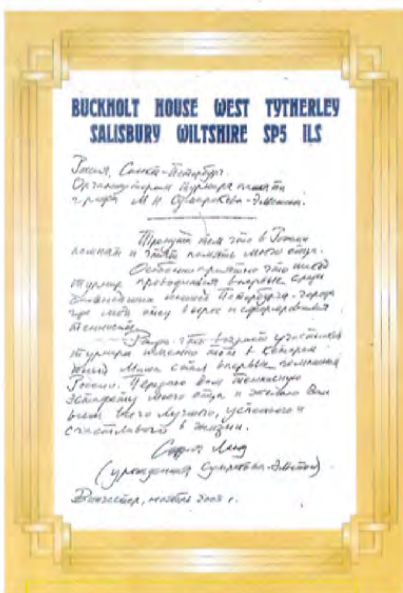 BUCKHOLT HOUSE WEST TYTHERLEY
SALISBURY WILTSHIRE SP5 1LS
Россия, Санкт-Петербург.
Организаторам турнира памяти
графа М. Н. Сумарокова-Эльстон.
Тронута тем что в России
помнят и чтят память моего отца.
Особенно приятно что
турнир проводится впервые среди
юношей Петербурга - города
где мой отец вырос и сформировался
теннисист.
Рада что возраст участников
турнира именно тот в котором
Миша стал впервые чемпионом
России. Передаю Вам теннисную
эстафету моего отца и желаю Вам
всем всего лучшего, успешного и
счастливого в жизни.
(урожденная Сумарокова-Эльстон)
Винчестер, ноября 2003 г.